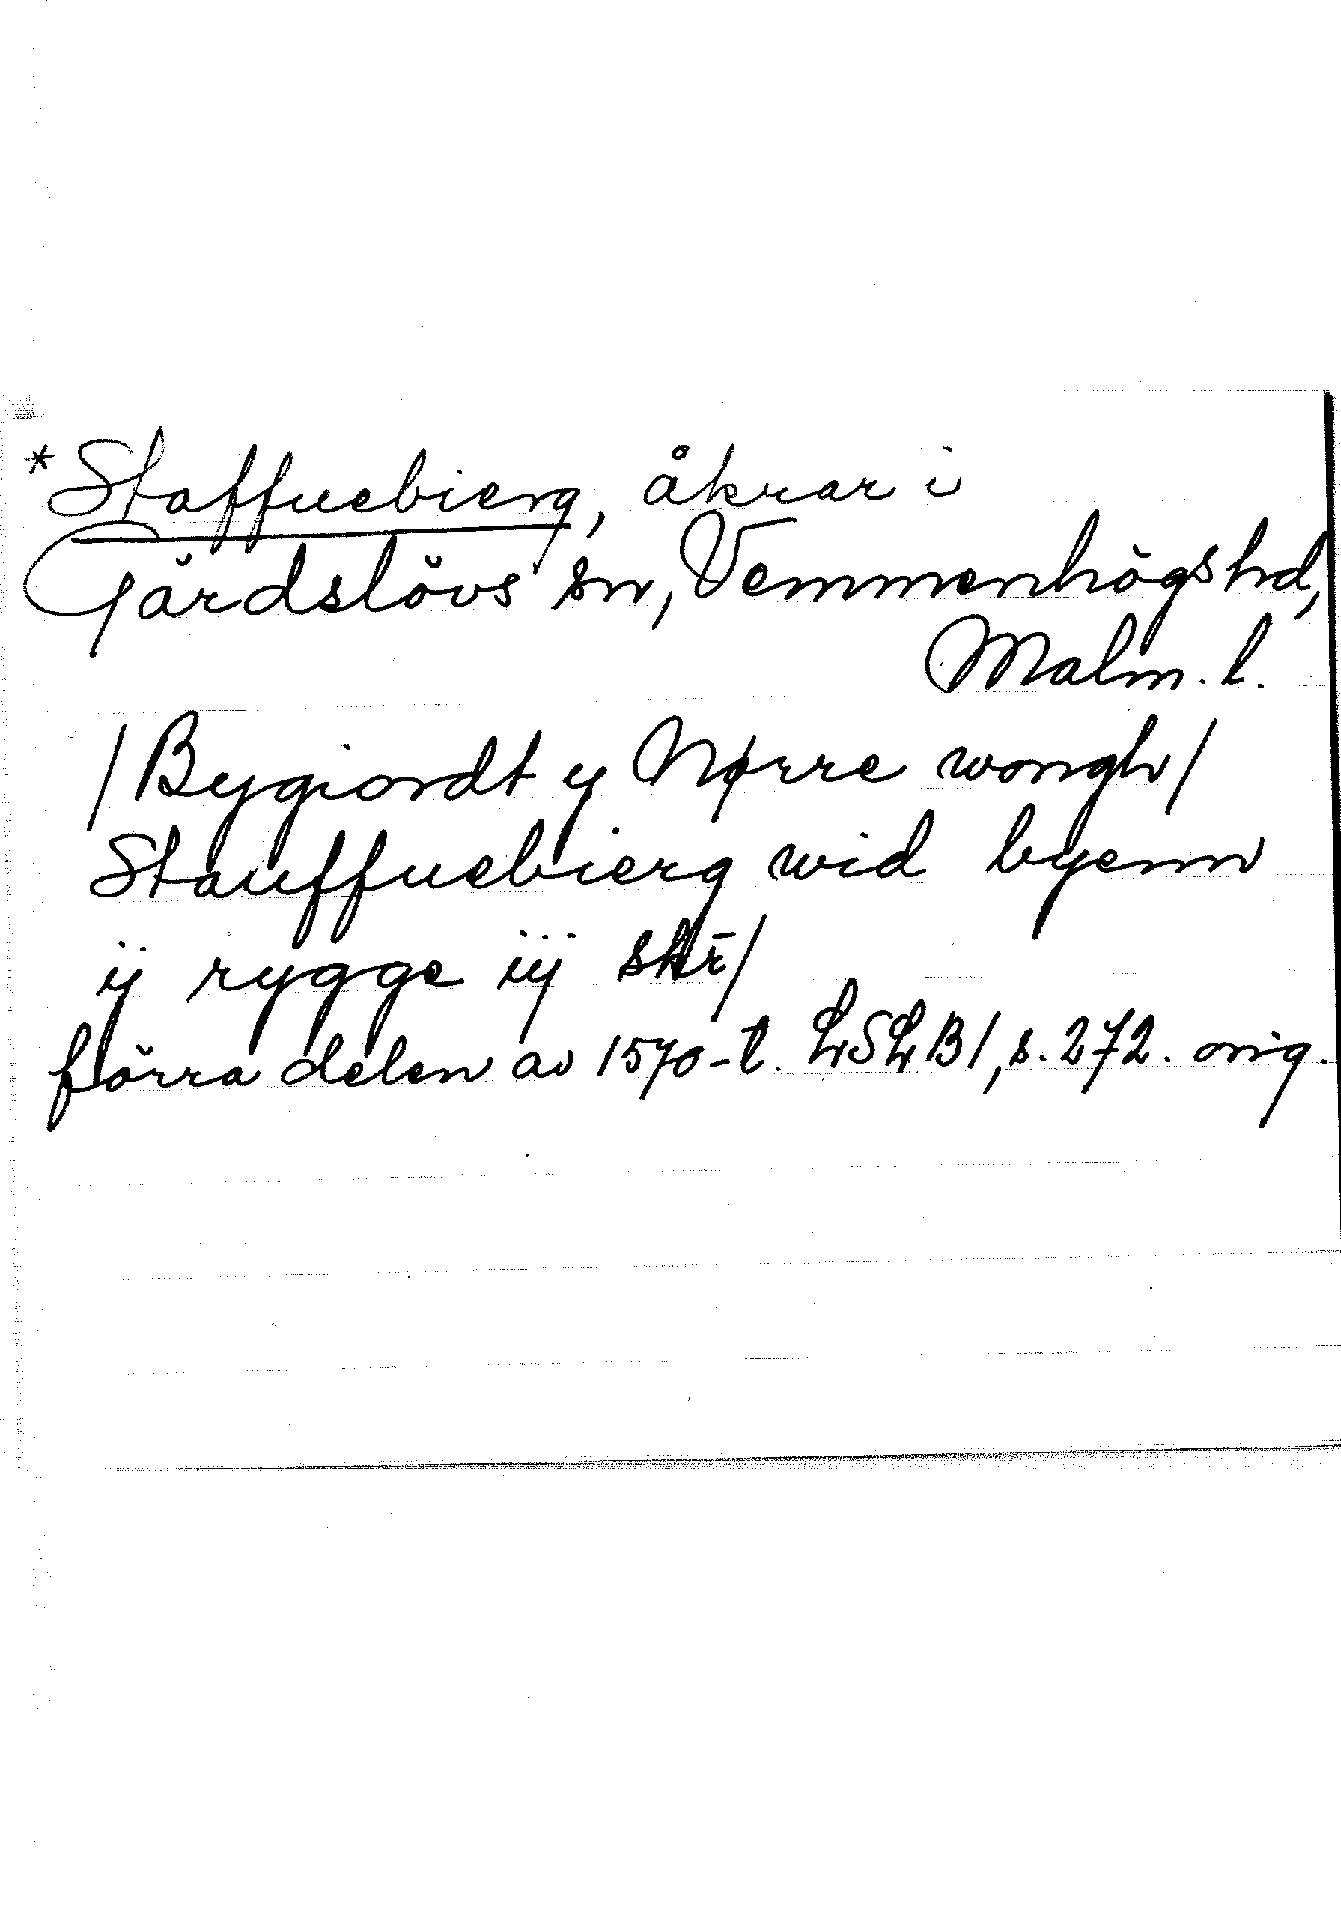 *Staffuebierg, åkrar i
Gärdslövs sn, Vemmenhögs hd,
Malm. l.
/Bygiordt y Nørre wongh/
Stauffuebierg wid byenn
ij rygge iij skr̄/
förra delen av 1570-t. LSLB1, s. 272. orig.